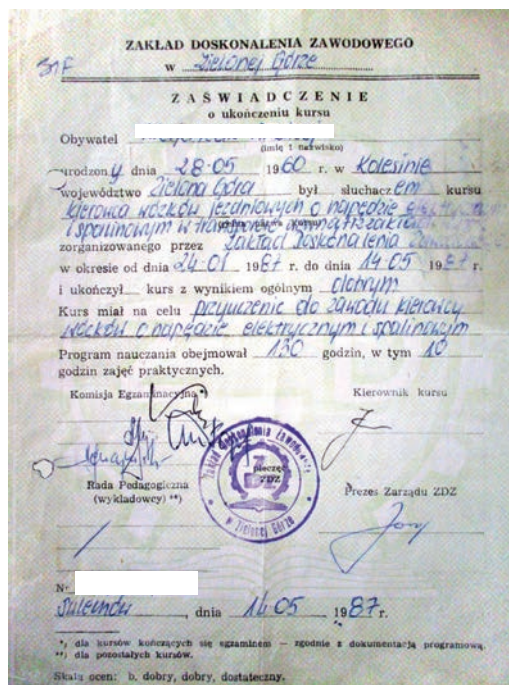 ZAKŁAD DOSKONALENIA ZAWODOWEGO
w Zielonej Górze
ZAŚWIADCZENIE
o ukończeniu kursu
Obywatel
(imię i nazwisko)
urodzony dnia 28.05 1960 r. w Kolesinie
województwo Zielona Góra był słuchaczem kursu
kierowca wózków jezdniowych o napędzie
i spalinowym w transporcie
zorganizowanego przez Zakład Doskonalenia
w okresie od dnia 24.01 1987 r. do dnia 14.05 1987 r.
i ukończył kurs z wynikiem ogólnym dobrym
Kurs miał na celu przyuczenie do zawodu kierowcy
wózków o napędzie elektrycznym i spalinowym
Program nauczania obejmował 130 godzin, w tym 10
godzin zajęć praktycznych.
Komisja Egzaminacyjna *) Kierownik kursu
Zakład Doskonalenia Zawodowego
pieczęć
ZDZ
w Zielonej Górze
Rada Pedagogiczna Prezes Zarządu ZDZ
(wykładowcy) **)
Nr
Sulechów, dnia 14.05 1987 r.
*) dla kursów kończących się egzaminem — zgodnie z dokumentacją programową.
**) dla pozostałych kursów.
Skala ocen: b. dobry, dobry, dostateczny.